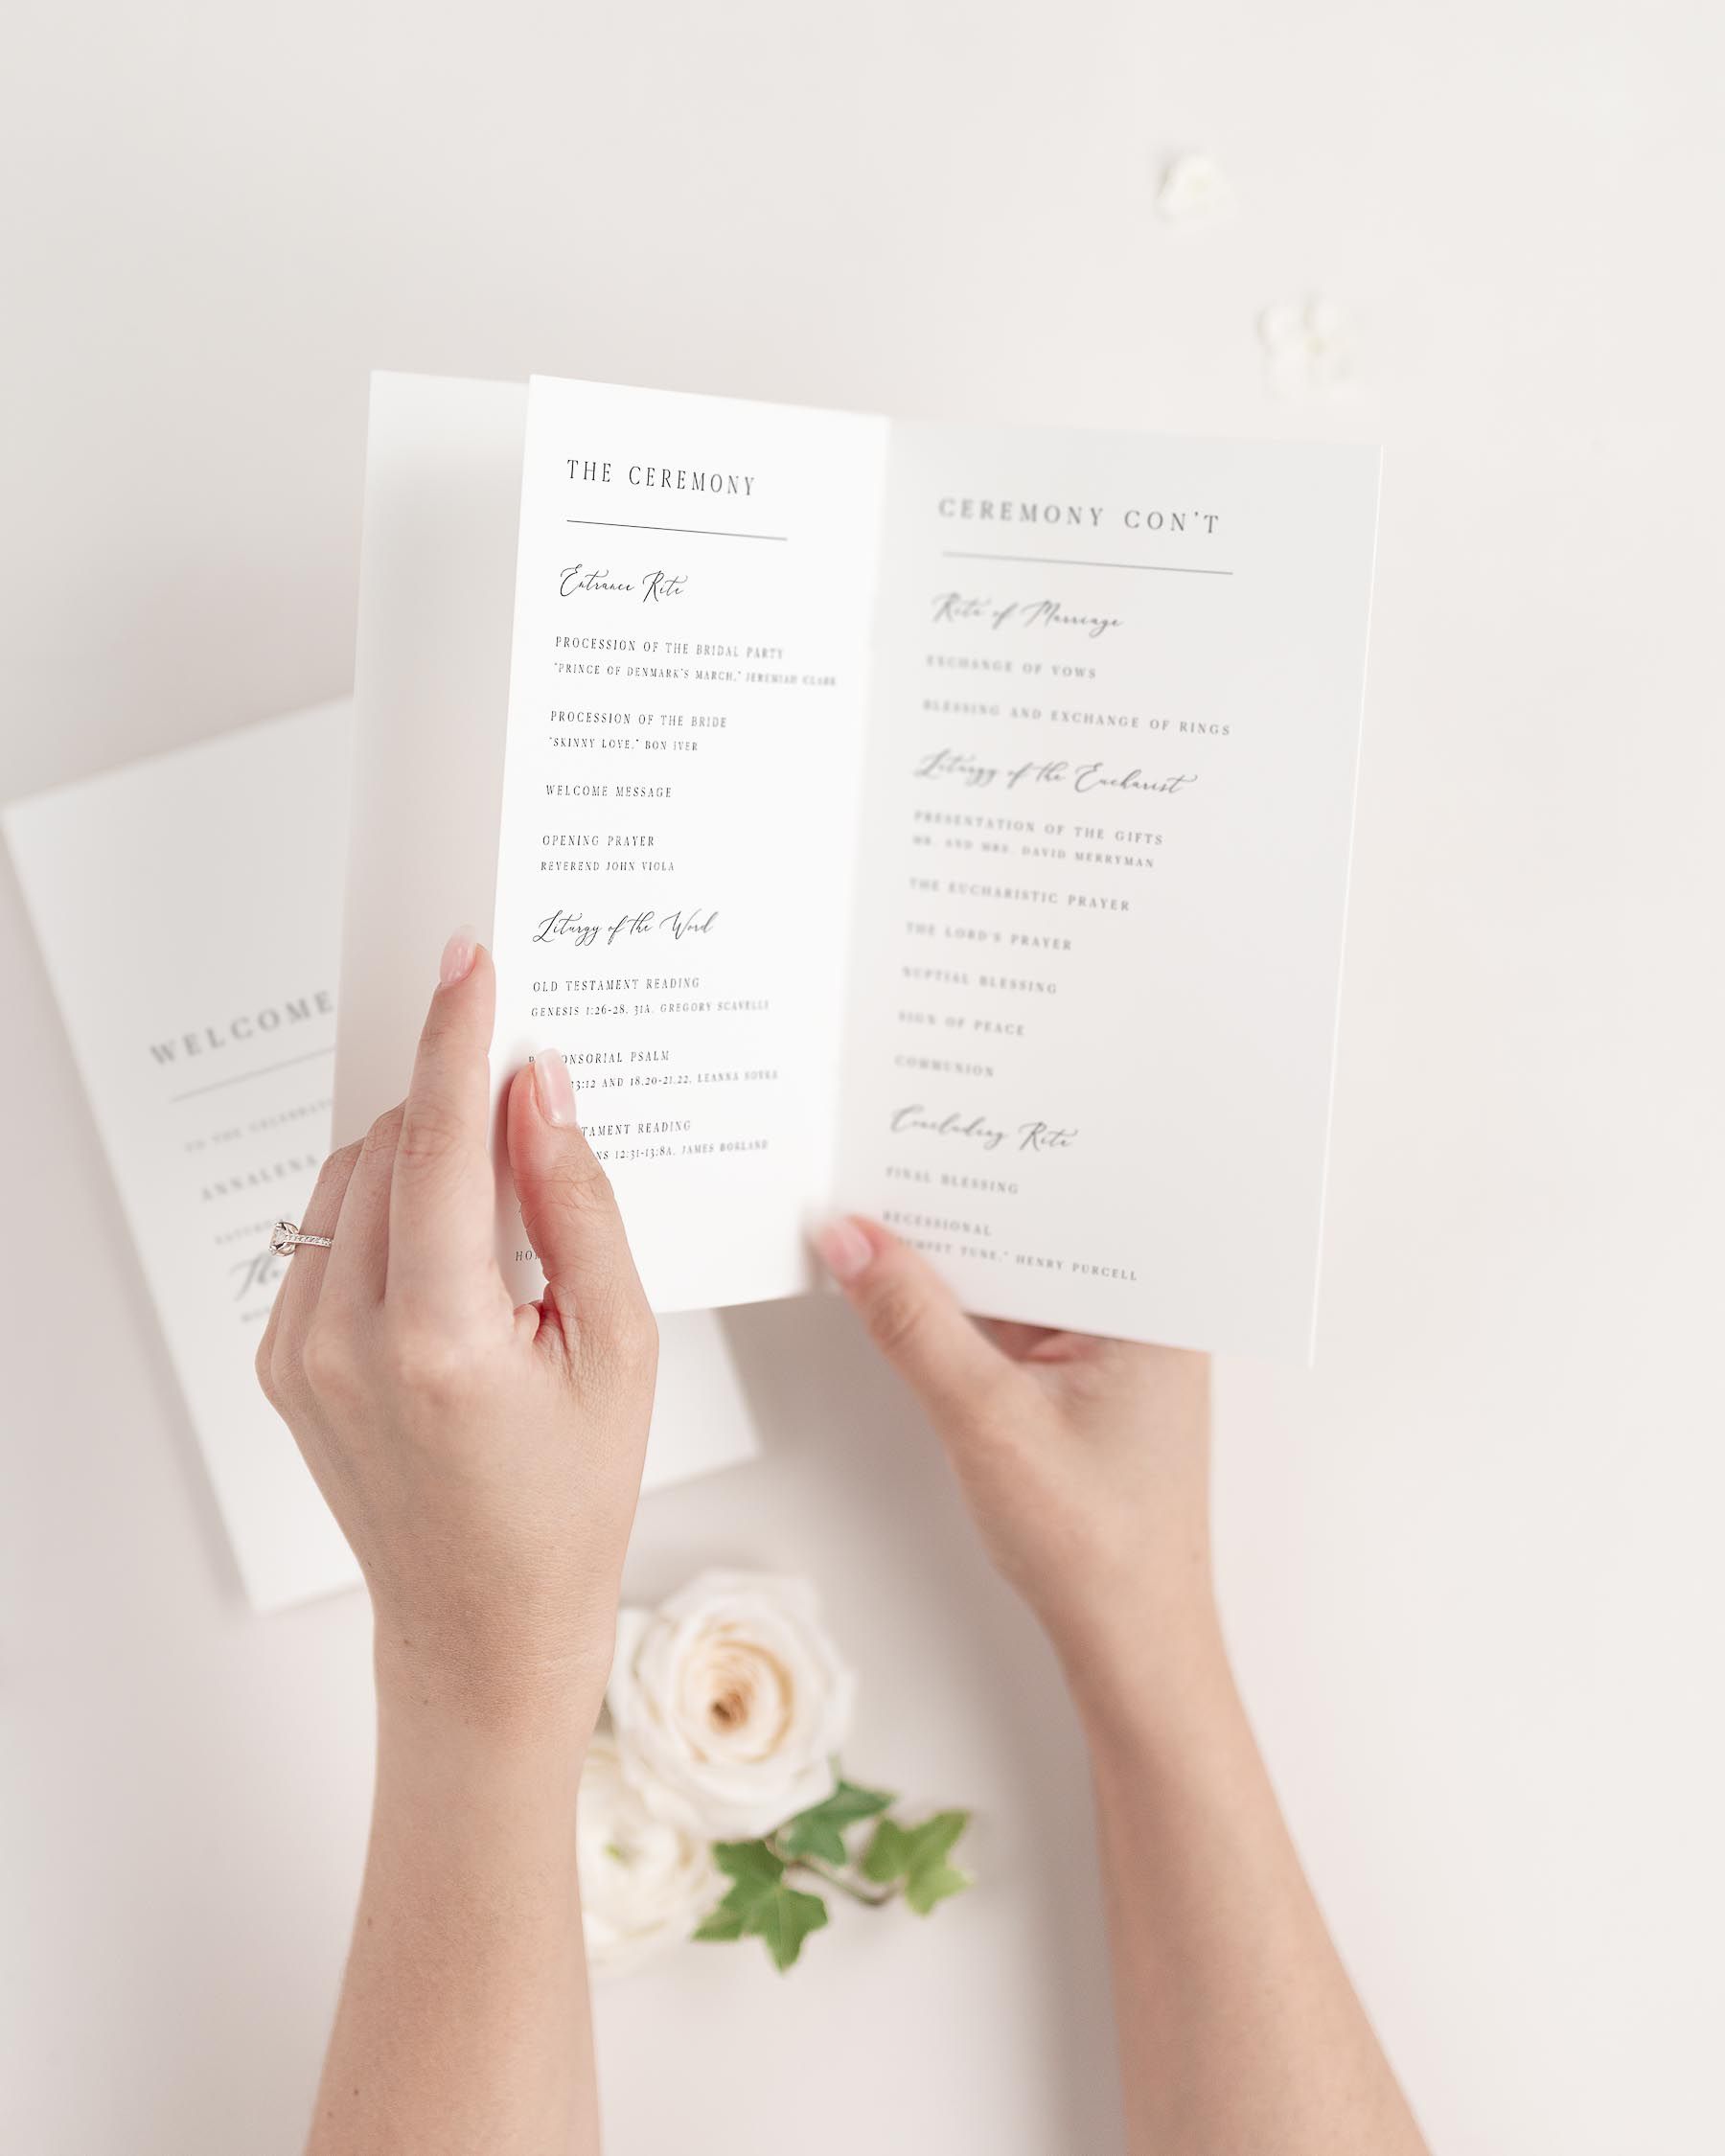 THE CEREMONY
Entrance Rite
PROCESSION OF THE BRIDAL PARTY
"PRINCE OF DENMARK'S MARCH," JEREMIAH CLARK
PROCESSION OF THE BRIDE
"SKINNY LOVE," BON IVER
WELCOME MESSAGE
OPENING PRAYER
REVEREND JOHN VIOLA
Liturgy of the Word
OLD TESTAMENT READING
GENESIS 1:26-28, 31A, GREGORY SCAVELLI
ONSORIAL PSALM
13:12 AND 18,20-21,22, LEANNA
TAMENT READING
NS 12:31-13:8A, JAMES BORLAND
HO
CEREMONY CON'T
Rite of Marriage
EXCHANGE OF VOWS
BLESSING AND EXCHANGE OF RINGS
Liturgy of the Eucharist
PRESENTATION OF THE GIFTS
MR. AND MRS. DAVID MERRYMAN
THE EUCHARISTIC PRAYER
THE LORD'S PRAYER
NUPTIAL BLESSING
SIGN OF PEACE
COMMUNION
Concluding Rite
FINAL BLESSING
RECESSIONAL
UMPET TUNE," HENRY PURCELL
WELCOME
TO THE CELEBRAT
ANNALENA
SATURDAY
The